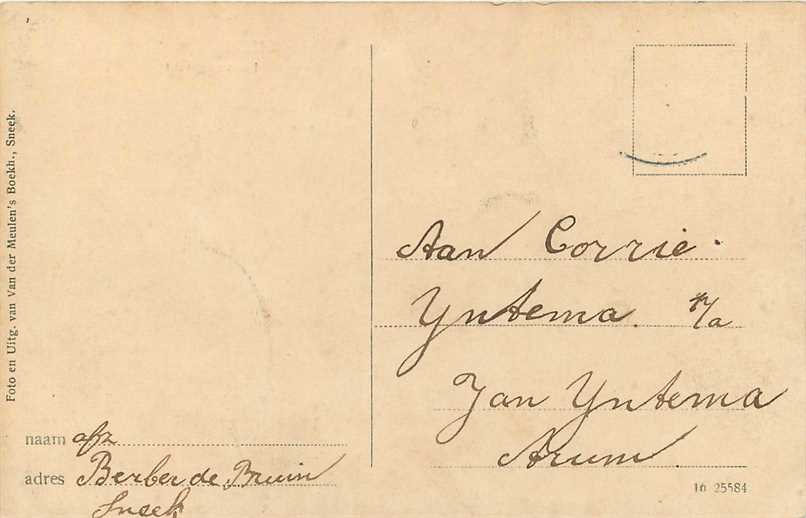 Foto en Uitg. van Van der Meulen's Boekh., Sneek.
Aan Corrie
Yntema
Jan Yntema
Arum
naam afz
adres Berber de Bruin
Sneek
16 25584